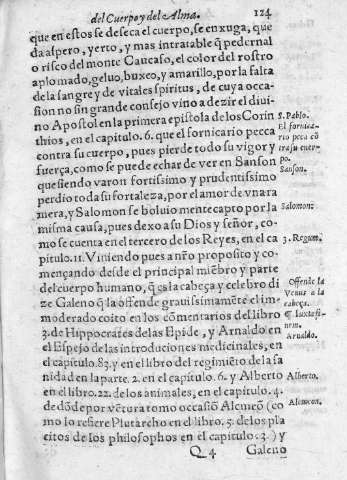 del Cuerpo y del Alma. 124
que en estos se deseca el cuerpo, se enxuga, que
da aspero, yerto, y mas intratable q̃ pedernal
o risco del monte Caucaso, el color del rostro
aplomado, geluo, buxeo, y amarillo, por la falta
de la sangre y de vitales spiritus, de cuya occa-
sion no sin grande consejo vino a dezir el diui-
no Apostol en la primera epistola de los Corin
thios, en el capitulo. 6. que el fornicario pecca
contra su cuerpo, pues pierde todo su vigor y
fuerça, como se puede echar de ver en Sanson
que siendo varon fortissimo y prudentissimo
perdio toda su fortaleza, por el amor de vna ra
mera, y Salomon se boluio mentecapto por la
misma causa, pues dexo a su Dios y señor, co-
mo se cuenta en el tercero de los Reyes, en el ca
pitulo. 11. Viniendo pues a nro proposito y co-
mençando desde el principal miẽbro y parte
del cuerpo humano, q̃ es la cabeça y celebro di
ze Galeno q̃ la offende grauissimamẽte el im-
moderado coito en los comentarios del libro
3. de Hippocrates de las Epide, y Arnaldo en
el Espejo de las introduciones medicinales, en
el capitulo. 83. y en el libro del regimiẽto de la sa
nidad en la parte. 2. en el capitulo. 6. y Alberto
en el libro. 22. de los animales, en el capitulo. 4.
de dõde por vẽtura tomo occasiõ Alcmeõ (co
mo lo refiere Plutarcho en el libro. 5. de los pla
citos de los philosophos en el capitulo. 3.) y
Q 4 Galeno
S. Pablo.
El fornica-
rio peca cõ
tra su cuer-
po.
Sanson.
Salomon:
3. Regum.
Offende la
Venus a la
cabeça.
¶ Iuxta fi-
nem.
Arnaldo.
Alberto.
Alcmeon.